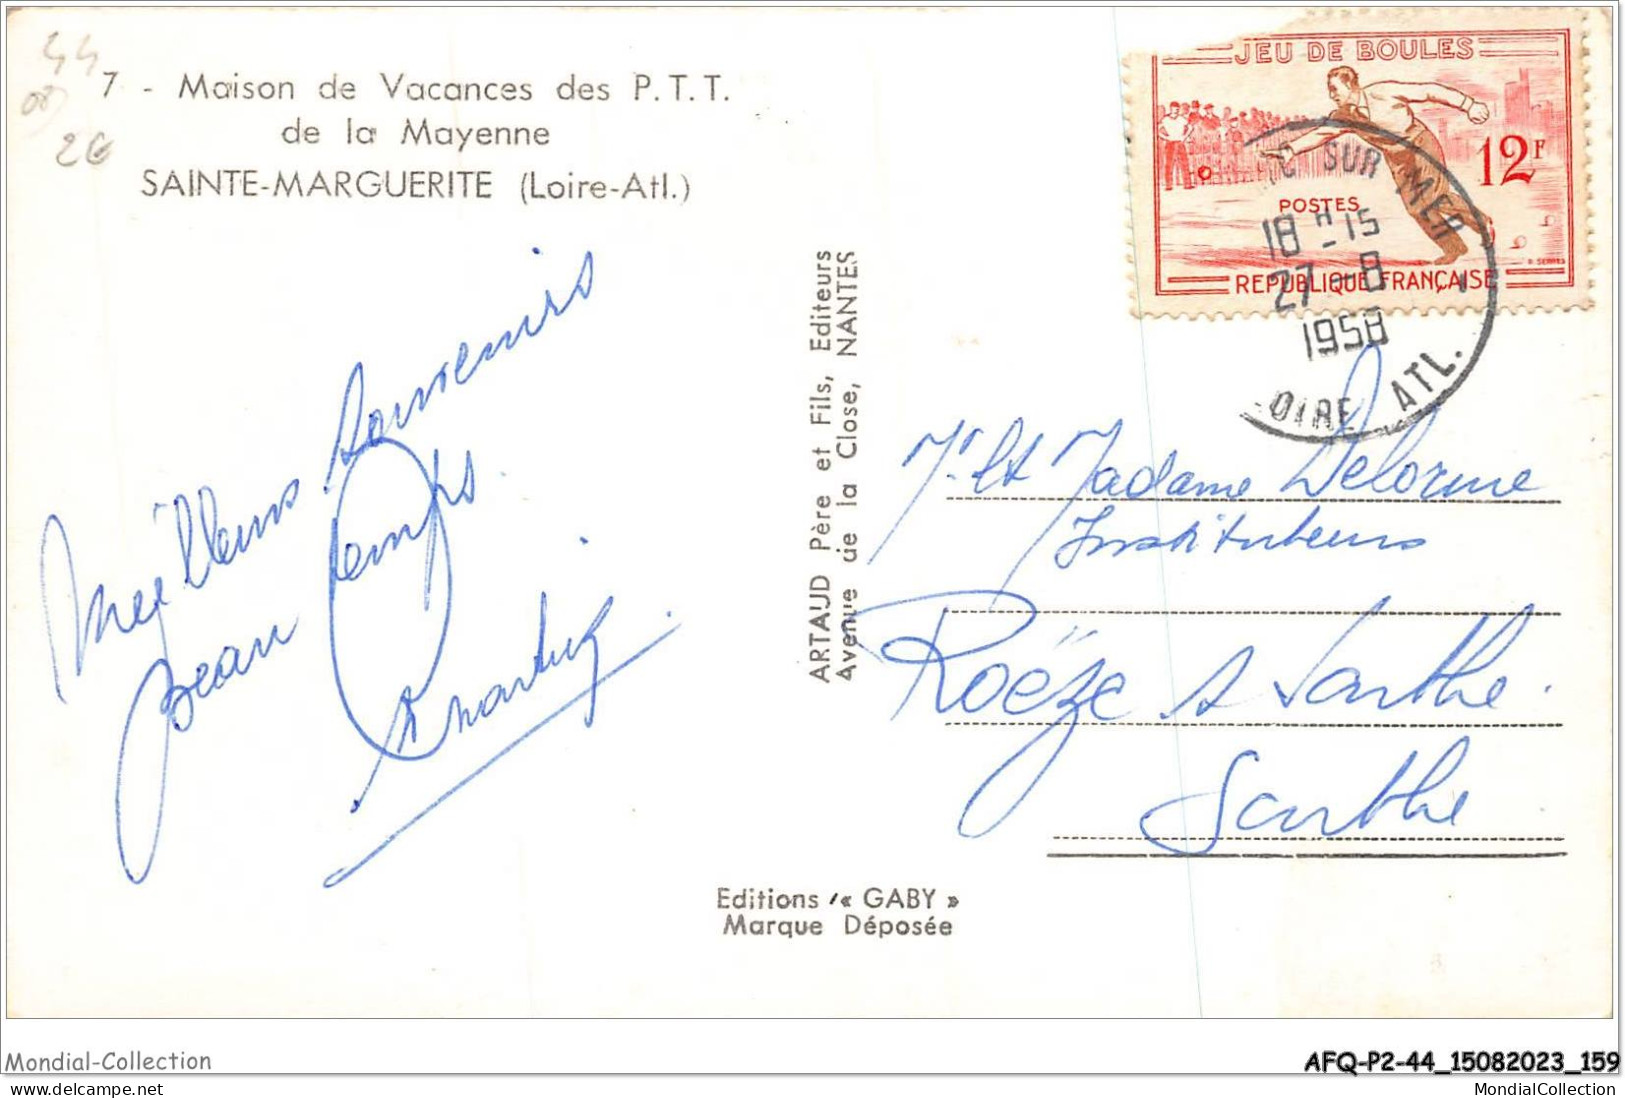 44
26
7 - Maison de Vacances des P.T.T.
de la Mayenne
SAINTE-MARGUERITE (Loire-Atl.)
Meilleurs souvenirs
Beau temps.
ARTAUD Père et Fils, Editeurs
Avenue de la Close, NANTES
JEU DE BOULES
12F
POSTES
REPUBLIQUE FRANÇAISE
SUR MER
18 H 15
27 - 8
1958
OIRE ATL.
Mr et Madame Delorme
Instituteurs
Roëze s Sarthe.
Sarthe
Editions « GABY »
Marque Déposée
Mondial-Collection
AFQ-P2-44_15082023_159
© delcampe.net
MondialCollection